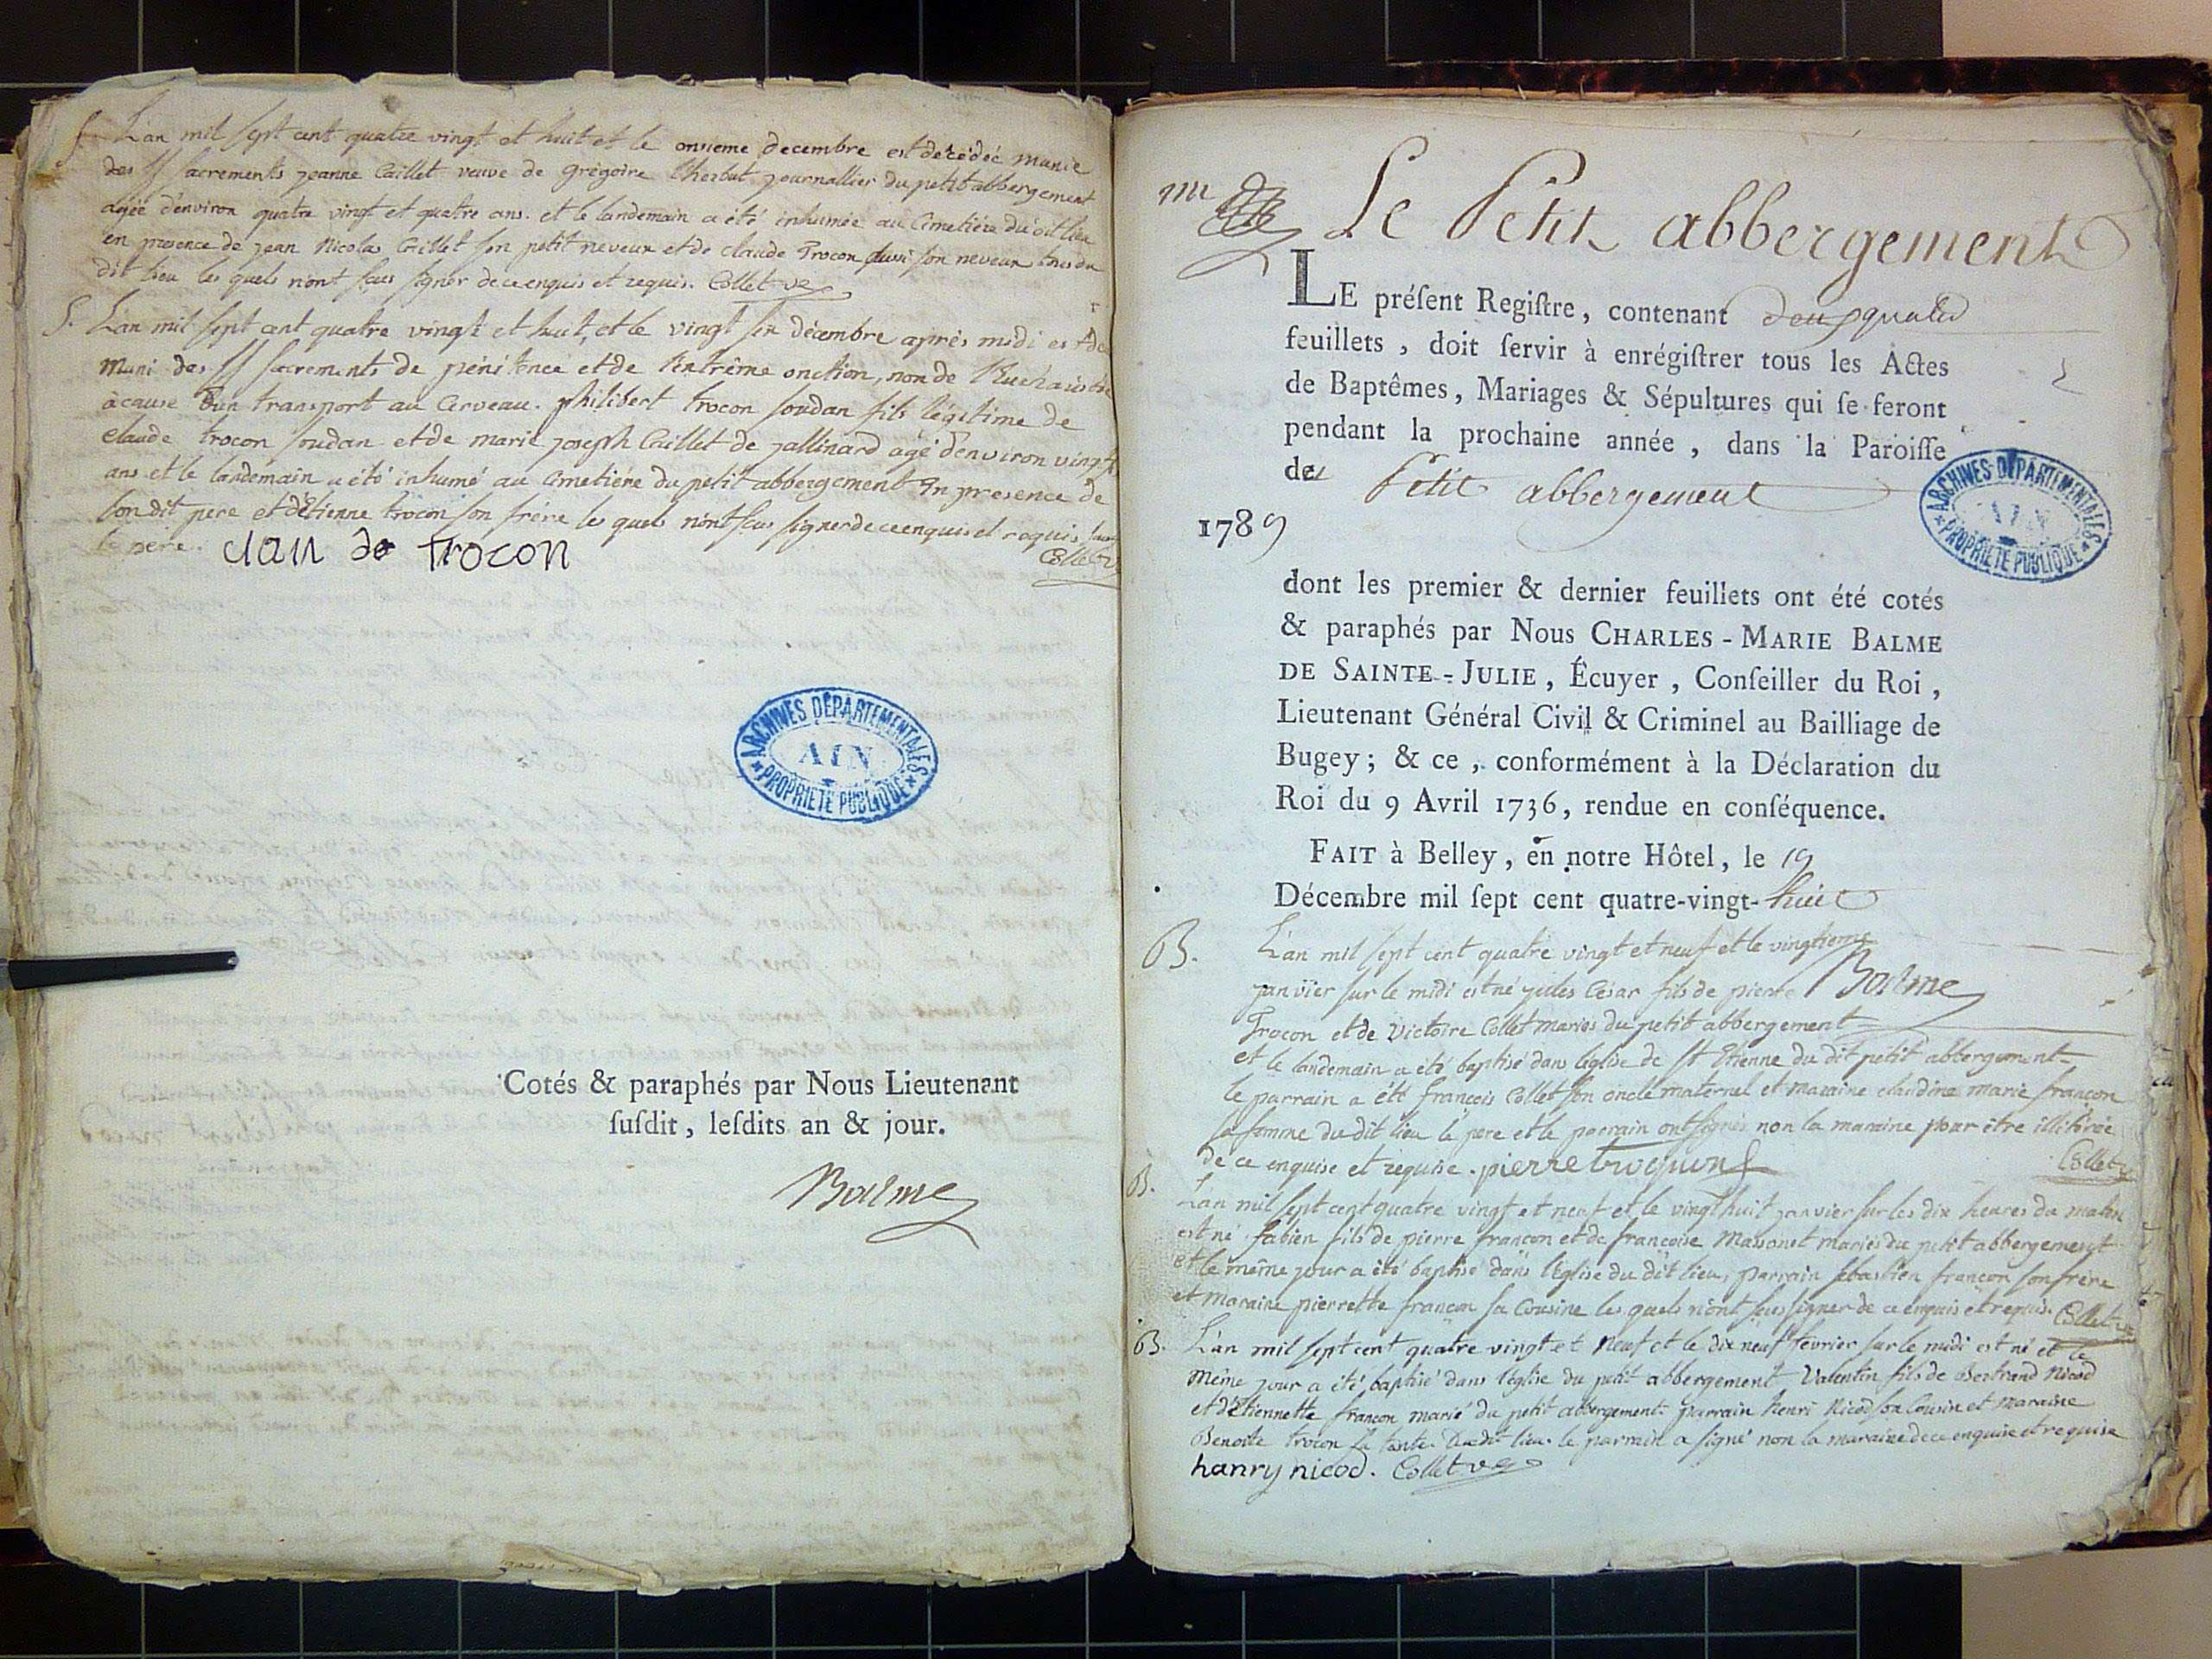 S. L'an mil sept cent quatre vingt et huit et le onsieme decembre est décédée munie
des SS sacrements jeanne Caillet veuve de grégoire L'herbut journallier du petit abbergement
agée d'environ quatre vingt et quatre ans. et le landemain a été inhumée au Cimetière du dit lieu
en presence de jean Nicolas Caillet son petit neveux et de claude Trocon aussi son neveux tous du
dit lieu les quels n'ont sçus signer de ce enquis et requis. Collet vre
S. L'an mil sept cent quatre vingt et huit, et le vingt six décembre après midi est de
muni des SS sacrements de pénitence et de l'extrême onction, non de l'Euchaistie
à cause d'un transport au Cerveau. philibert trocon soudan fils légitime de
claude trocon soudan et de marie joseph Caillet de jallinard agé d'environ vingt
ans et le landemain a été inhumé au Cimetiére du petit abbergement En presence de
son dit pere et d'Etienne trocon son frére les quels n'ont sçus signer de ce enquis et requis sauf
le pere. clau de trocon
Collet v
ARCHIVES DÉPARTEMENTALES
AIN
PROPRIÉTÉ PUBLIQUE
Cotés & paraphés par Nous Lieutenant
ſuſdit, leſdits an & jour.
Balme
Le Petit abbergement
LE préſent Regiſtre, contenant quatre
feuillets, doit ſervir à enrégiſtrer tous les Actes
de Baptêmes, Mariages & Sépultures qui ſe feront
pendant la prochaine année, dans la Paroiſſe
du Petit abbergement
1789
ARCHIVES DÉPARTEMENTALES
AIN
PROPRIÉTÉ PUBLIQUE
dont les premier & dernier feuillets ont été cotés
& paraphés par Nous CHARLES-MARIE BALME
DE SAINTE-JULIE, Écuyer, Conſeiller du Roi,
Lieutenant Général Civil & Criminel au Bailliage de
Bugey; & ce, conformément à la Déclaration du
Roi du 9 Avril 1736, rendue en conſéquence.
FAIT à Belley, en notre Hôtel, le 19
Décembre mil ſept cent quatre-vingt-huit
Balme
B. L'an mil sept cent quatre vingt et neuf et le vingtieme
janvier sur le midi est né jules César fils de pierre
Trocon et de Victoire Collet mariés du petit abbergement
et le landemain a été baptisé dans l'église de St Etienne du dit petit abbergement
le parrain a été françois Collet son oncle maternel et maraine claudine marie françon
sa femme du dit lieu le pere et le parrain ont signés non la maraine pour être illitérée
de ce enquise et requise. pierre trocquon
Collet v
B. L'an mil sept cent quatre vingt et neuf et le vingt huit janvier sur les dix heures du matin
est né fabien fils de pierre françon et de françoise Massonet mariés du petit abbergement
et le même jour a été baptisé dans l'Eglise du dit lieu, parrain sébastien françon son frére
et maraine pierrette françon sa Cousine les quels n'ont sçus signer de ce enquis et requis. Collet v
B. L'an mil sept cent quatre vingt et neuf et le dix neuf février sur le midi est né et le
même jour a été baptisé dans l'église du petit abbergement Valentin fils de Bertrand Nicod
et d'Etiennette françon marié du petit abbergement. parrain henri Nicod son Cousin et maraine
Benoite trocon sa tante. du dit lieu. le parrain a signé non la maraine de ce enquise et requise
hanry nicod. Collet vre